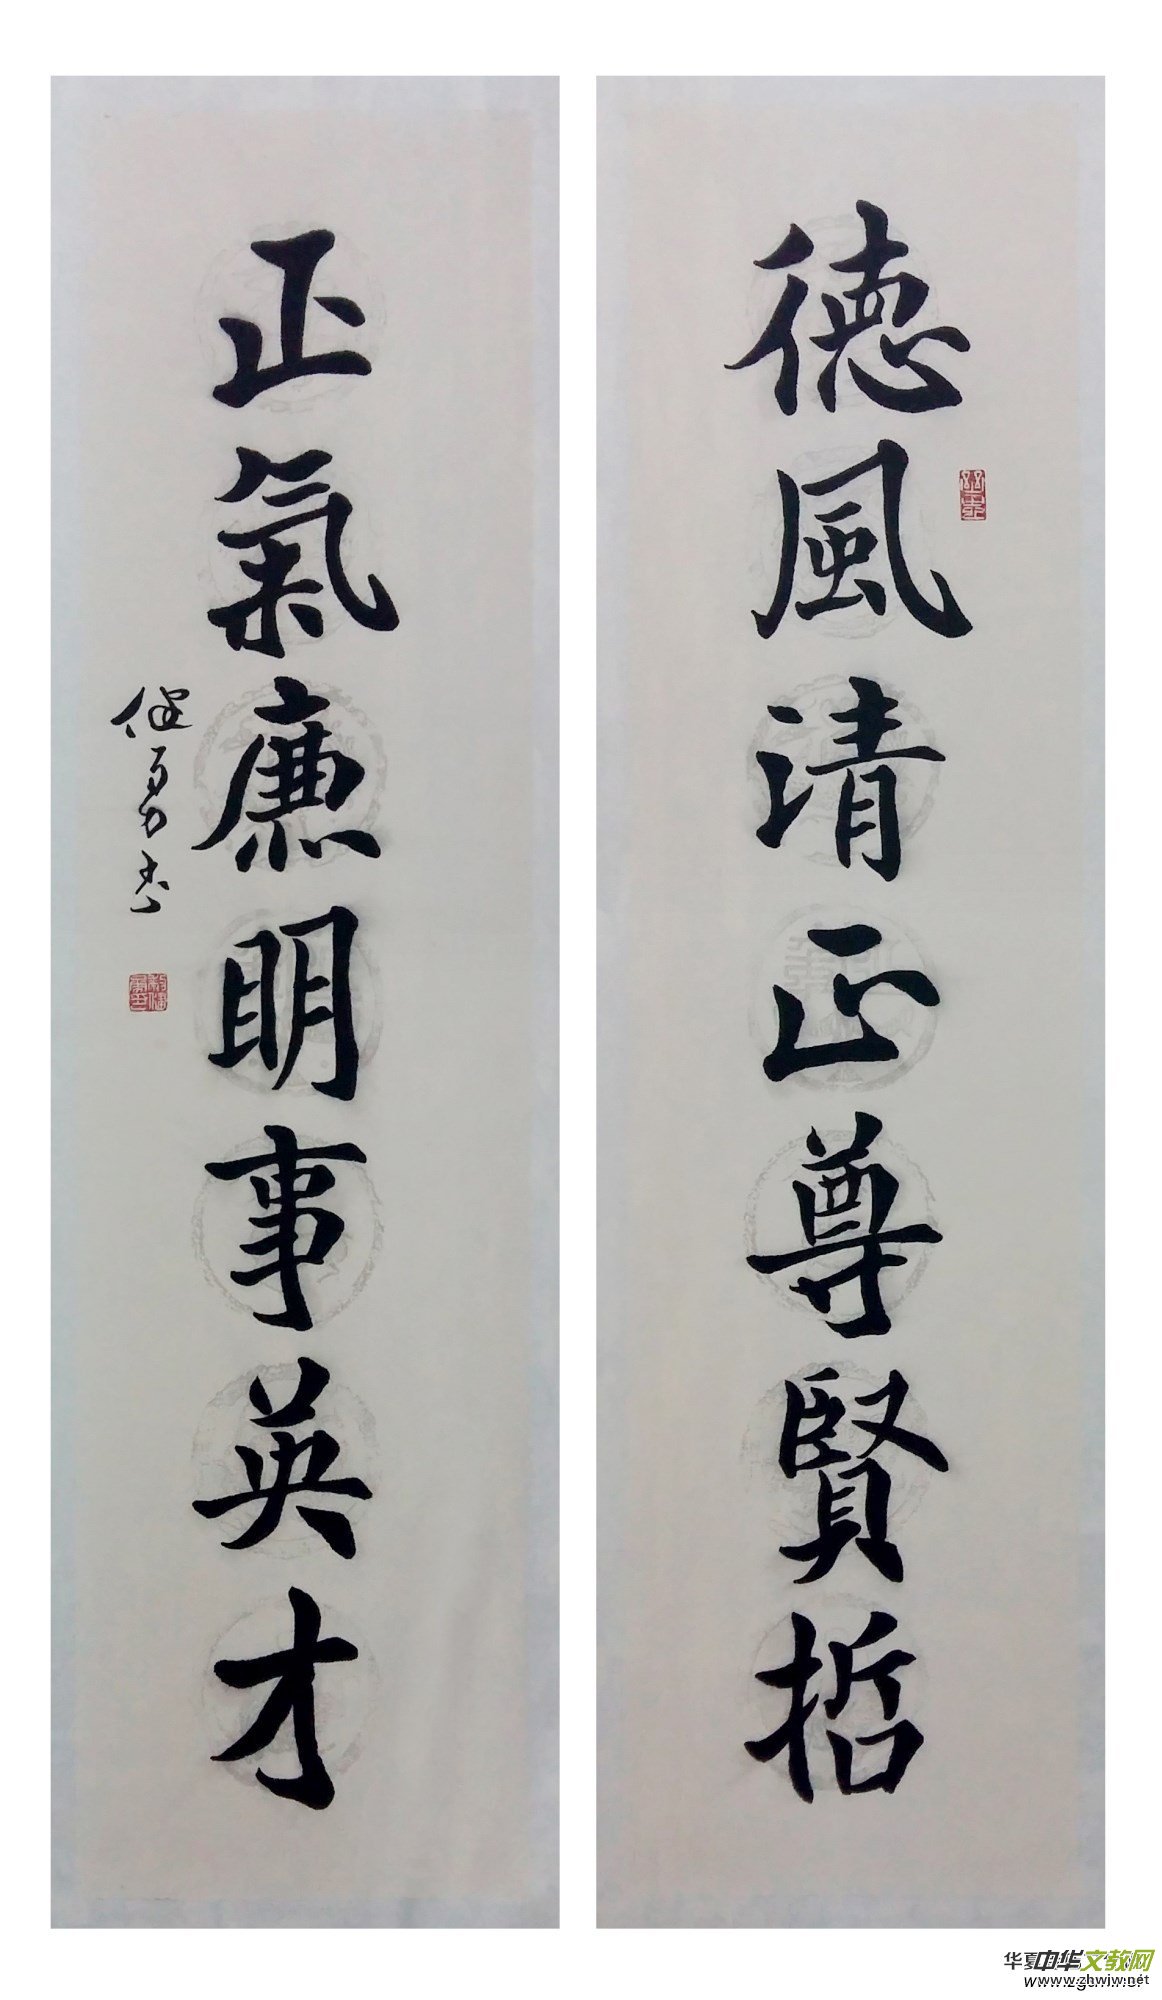 德風清正尊賢哲
正氣廉明事英才
健勇書
中华文教网
www.zhwjw.net